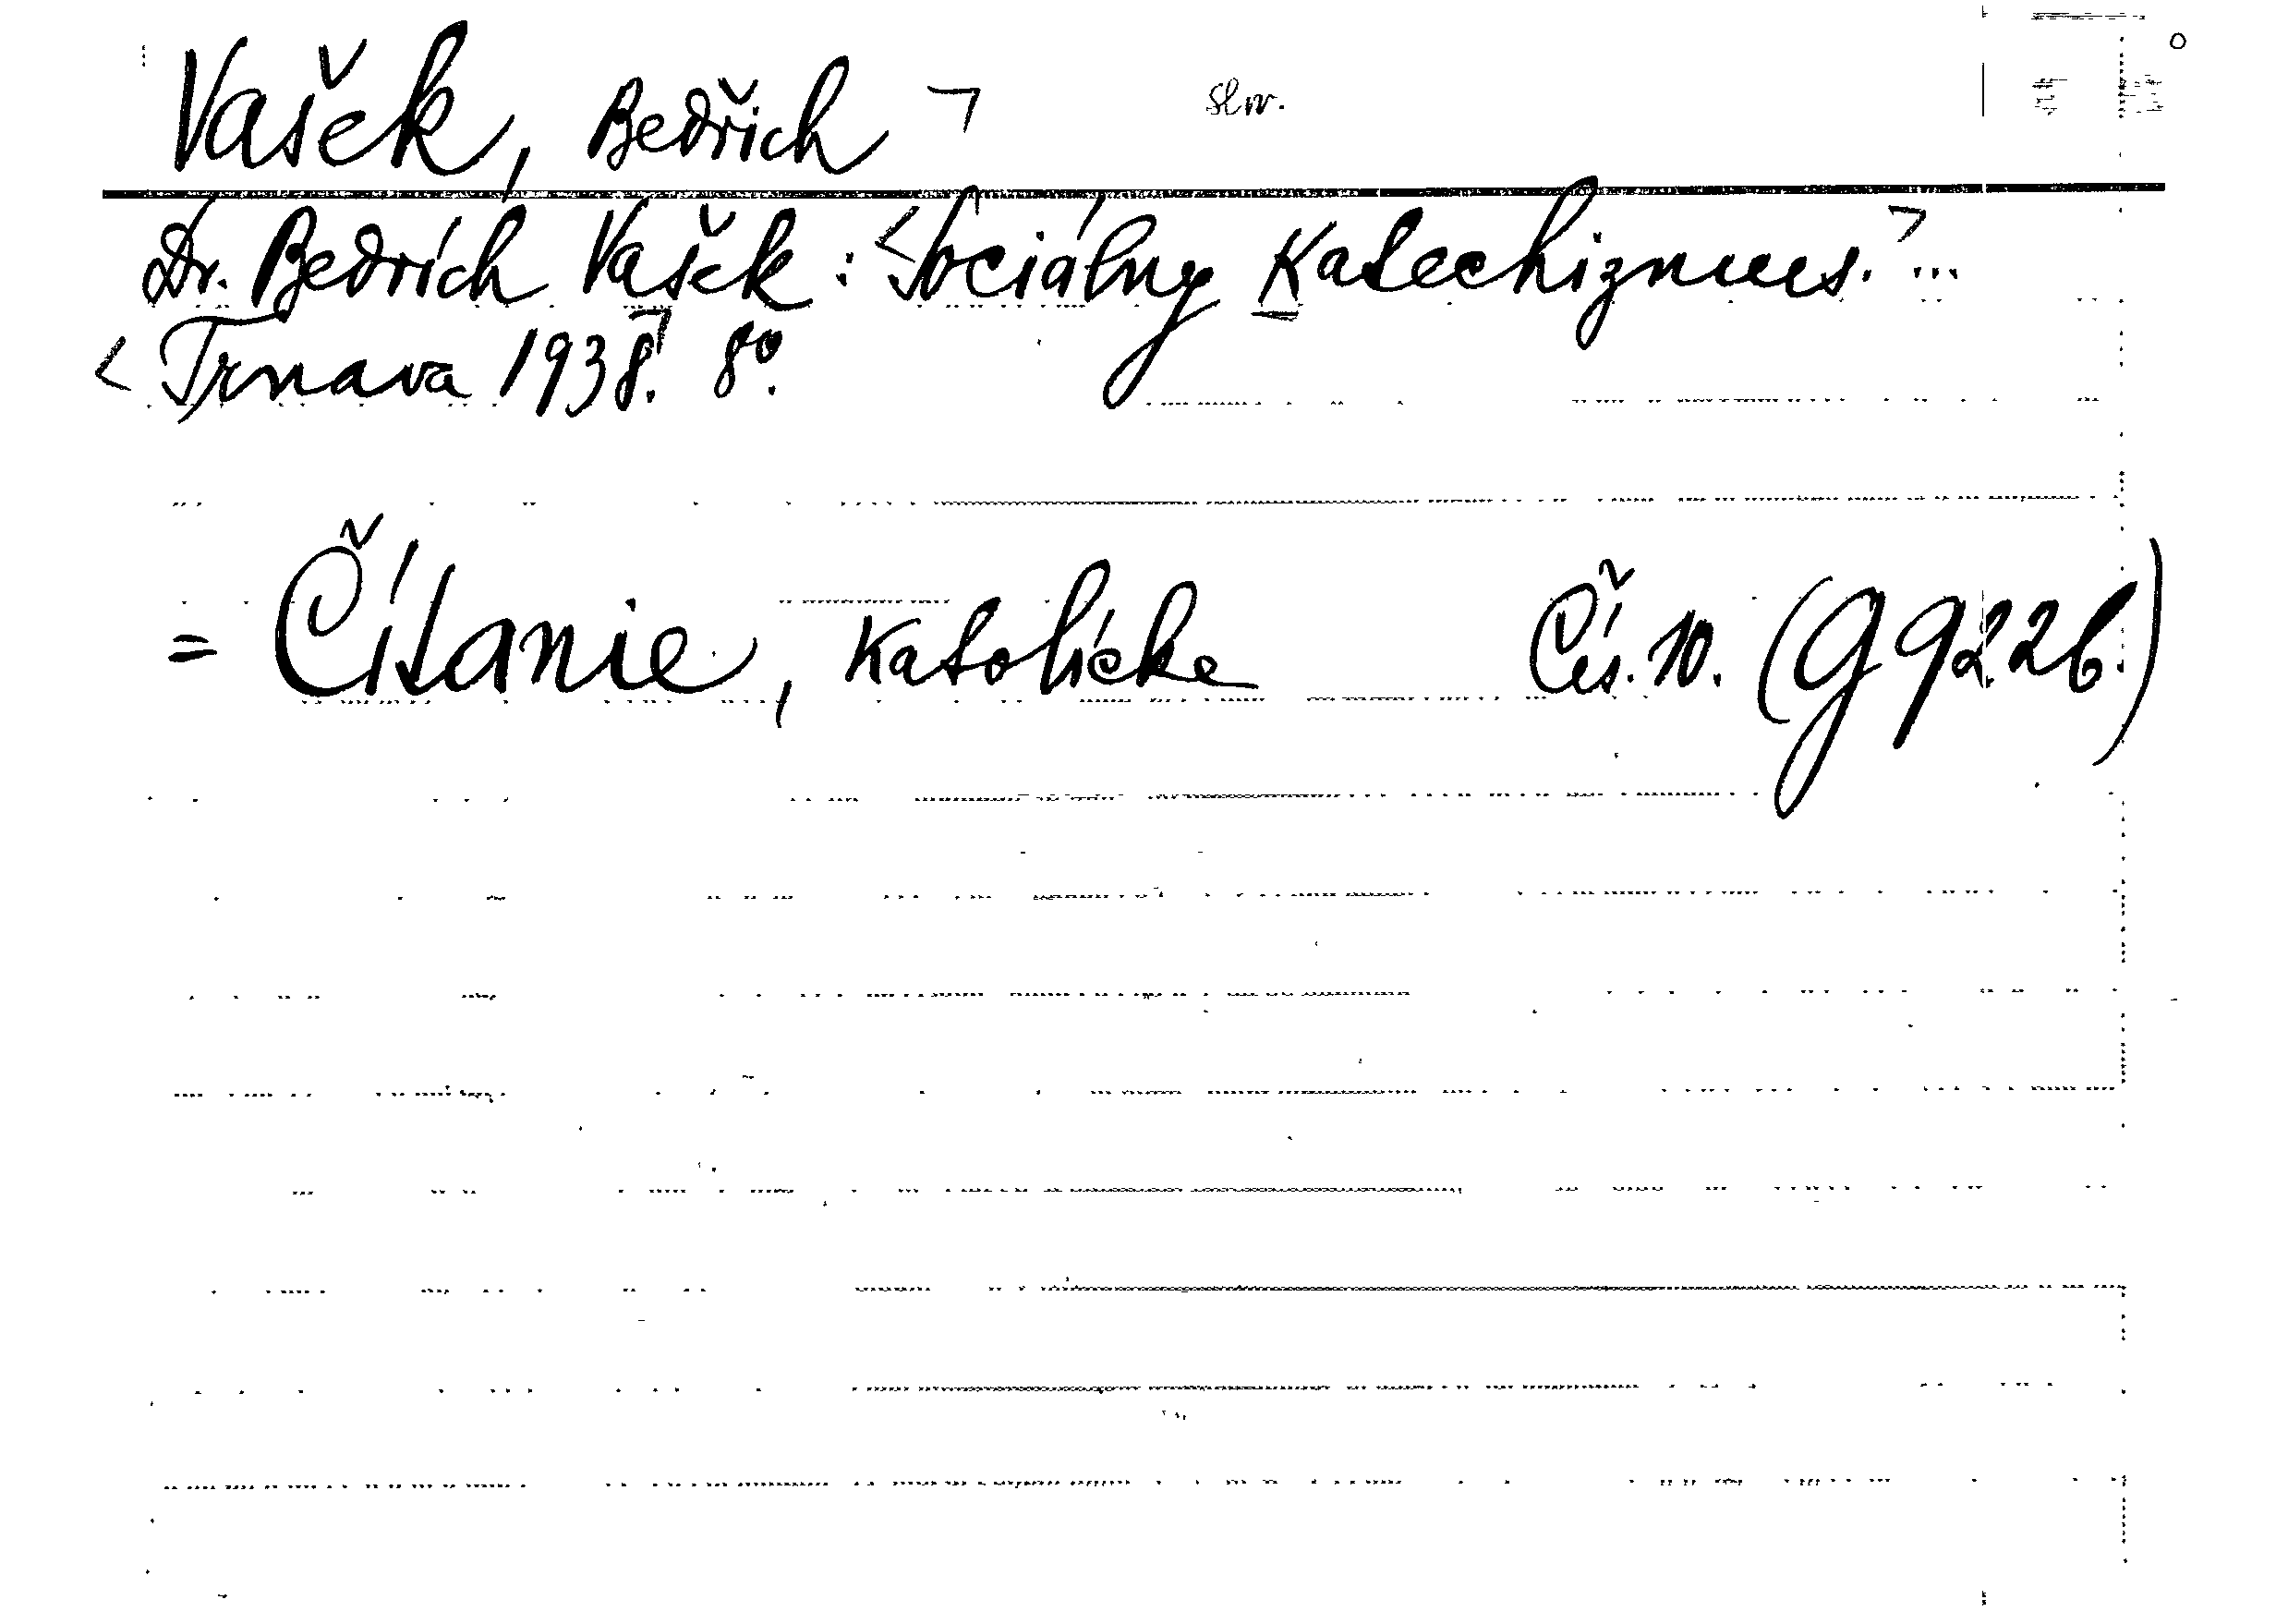 Vašek, Bedřich ꓶ slov.
Dr. Bedrich Vašek: <Sociálny Katechizmus.ꓶ...
<Trnava 1938.ꓶ 8°.
= Čítanie, Katolícke Čís. 10. (G 9226.)